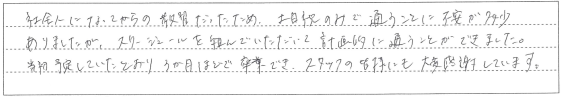 社会人になってからの教習だったため、土日祝のみで通うことに不安が多少
ありましたが、スケジュールを組んでいただいて計画的に通うことができました。
当初予定していたとおり3か月ほどで卒業でき、スタッフの皆様にも大変感謝しています。